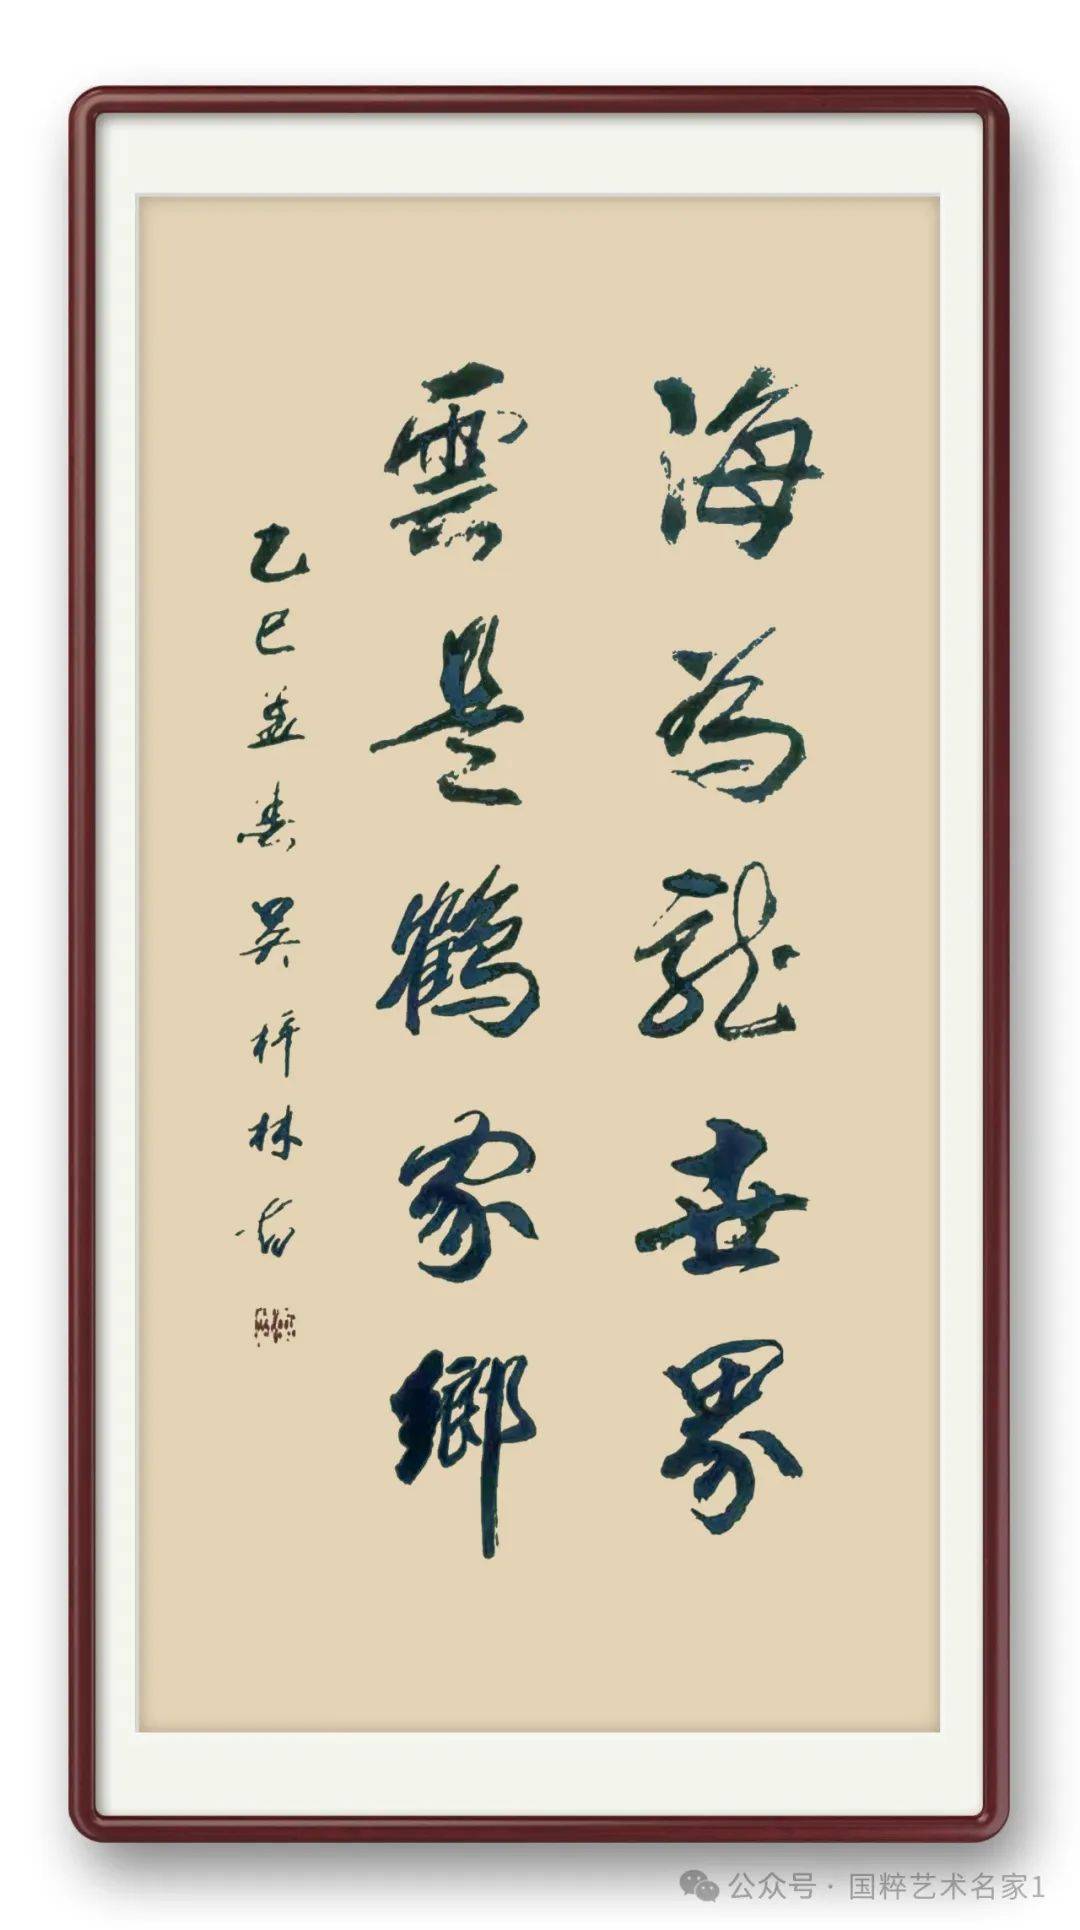 海為龍世界
雲是鶴家鄉
乙巳孟春吴梓林书
公众号 · 国粹艺术名家1